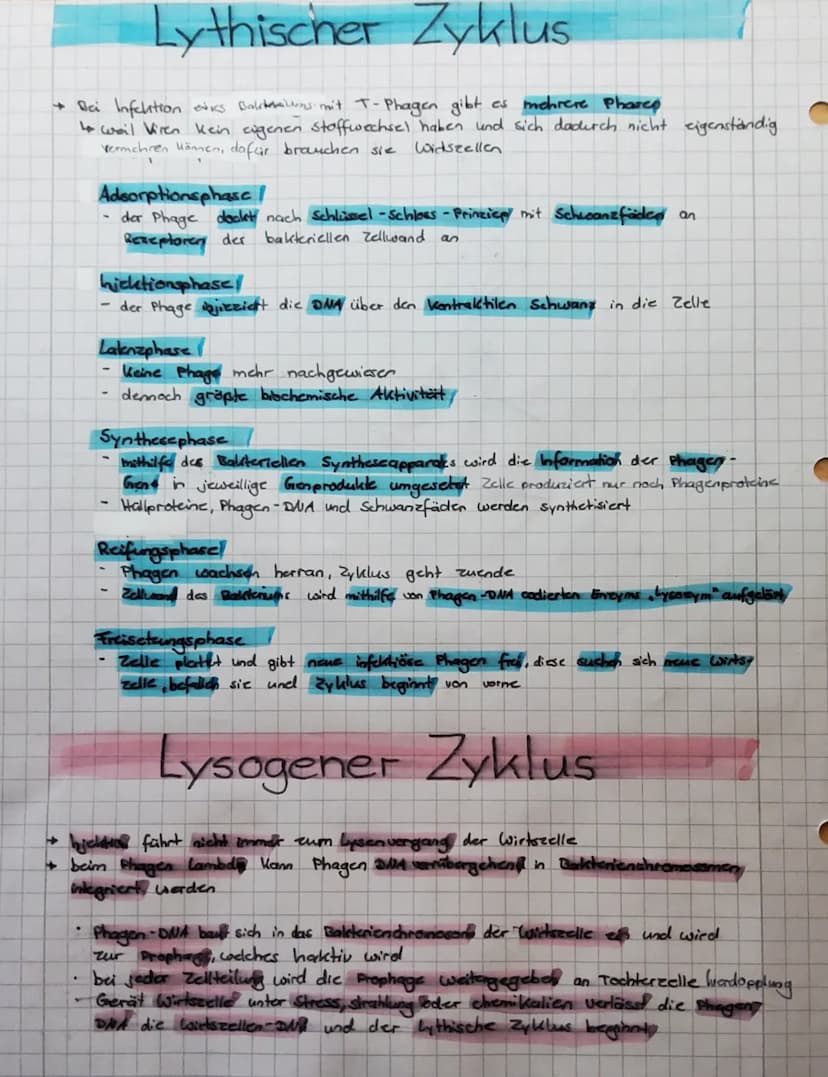 Lythischer Zyklus
→ Bei Infektion eines Bakteriums mit T-Phagen gibt es mehrere Phasen
↳ weil Viren kein eigenen Stoffwechsel haben und sich dadurch nicht eigenständig
vermehren können, dafür brauchen sie Wirtszellen
Adsorptionsphase
- der Phage dockt nach Schlüssel-Schloss-Prinziep mit Schwanzfäden an
Rezeptoren der bakteriellen Zellwand an
Injektionsphase
- der Phage injizziert die DNA über den kontraktilen Schwanz in die Zelle
Latenzphase
- keine Phage mehr nachgewiesen
- dennoch größte biochemische Aktivität
Synthesephase
- mithilfe des Bakteriellen Syntheseapparats wird die Information der Phagen-
Gene in jeweillige Genprodukte umgesetzt Zelle produziert nur noch Phagenproteine
- Hüllproteine, Phagen-DNA und Schwanzfäden werden synthetisiert
Reifungsphase
- Phagen wachsen herran, Zyklus geht zuende
- Zellwand des Bakteriums wird mithilfe von Phagen-DNA codierten Enzyms „Lysozym" aufgelöst
Freisetzungsphase
- Zelle platzt und gibt neue infektiöse Phagen frei, diese suchen sich neue Wirts-
zelle, befallen sie und Zyklus beginnt von vorne
Lysogener Zyklus
→ Injektion führt nicht immer zum Lysenvorgang der Wirtszelle
→ beim Phagen Lambda kann Phagen DNA vorrübergehend in Bakterienchromosomen
integriert werden
· Phagen-DNA baut sich in das Bakterienchromosom der Wirtszelle ein und wird
zur Prophage, welches inaktiv wird
· bei jeder Zellteilung wird die Prophage weitergegeben an Tochterzelle
- Gerät Wirtszelle unter Stress, strahlung oder chemikalien verlässt die Phagen
DNA die Wirtszellen-DNA und der Lythische Zyklus beginnt